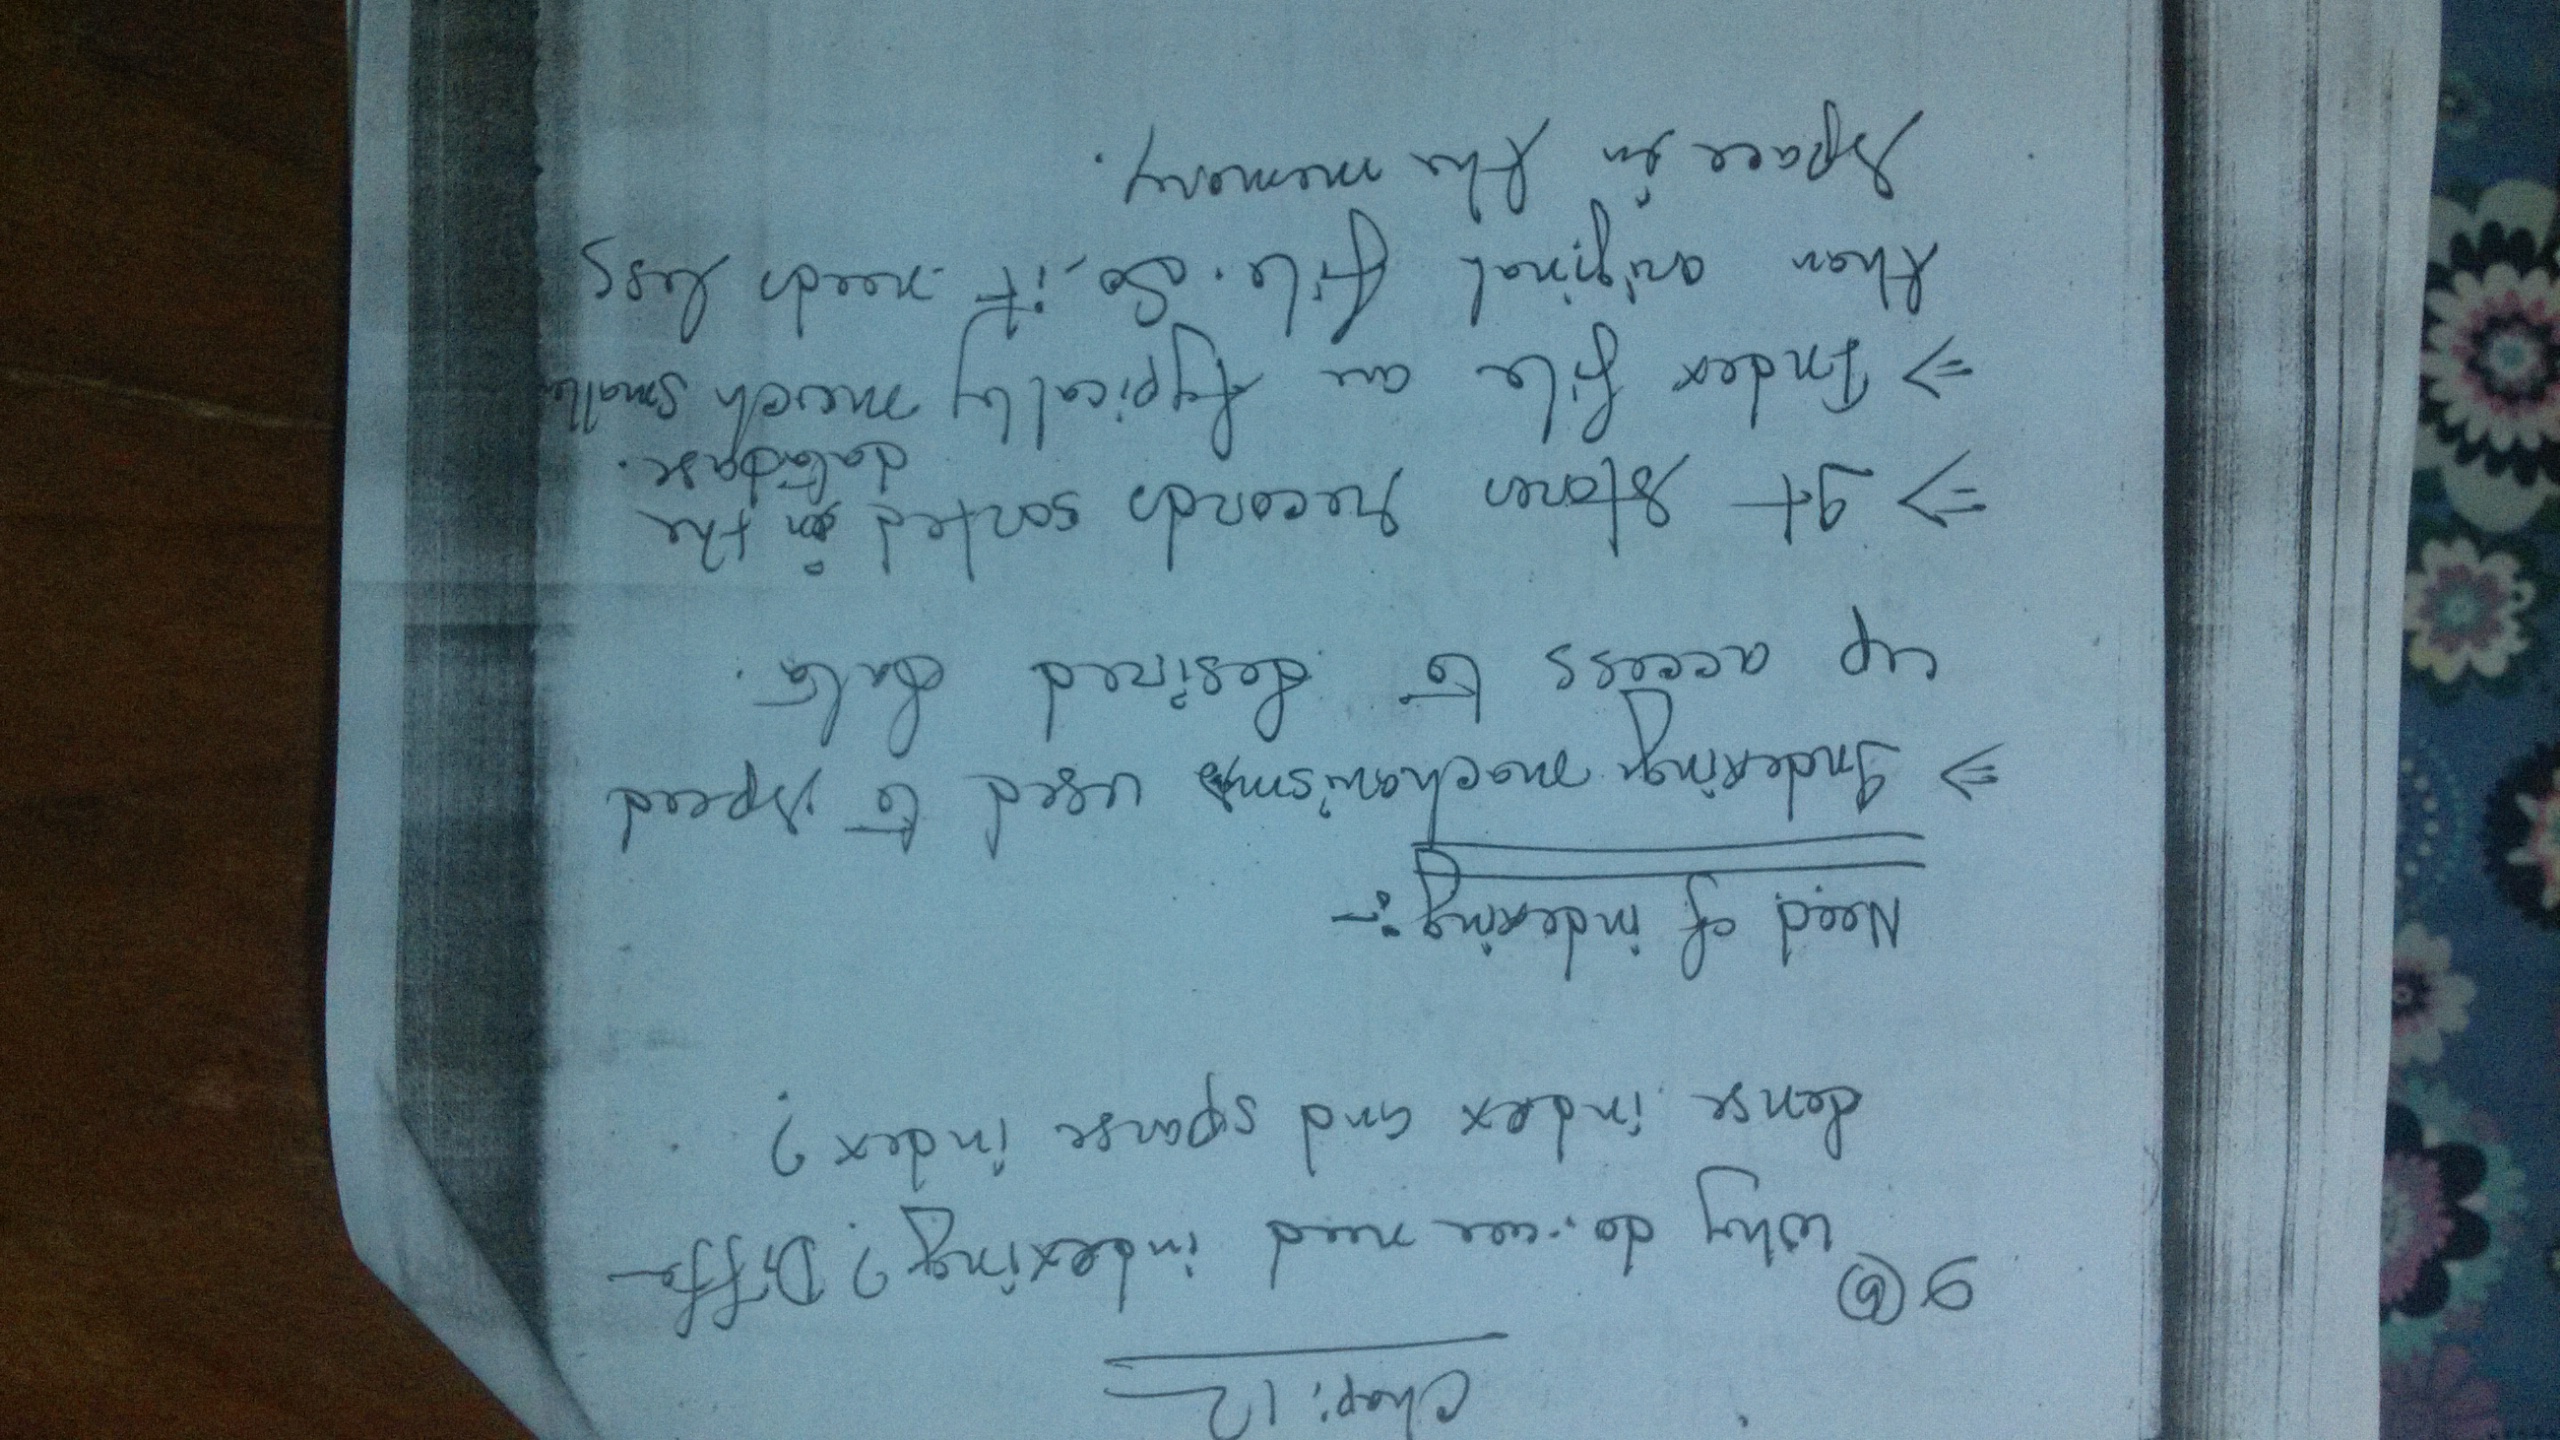 Chap: 12
9 (b) Why do we need indexing? Diffe-
dense index and sparse index?
Need of indexing :-
⇒ Indexing mechanisms used to speed
up access to desired data.
⇒ It stores records sorted in the
database.
⇒ Index file are typically much smaller
than original file. So, it needs less
space in the memory.